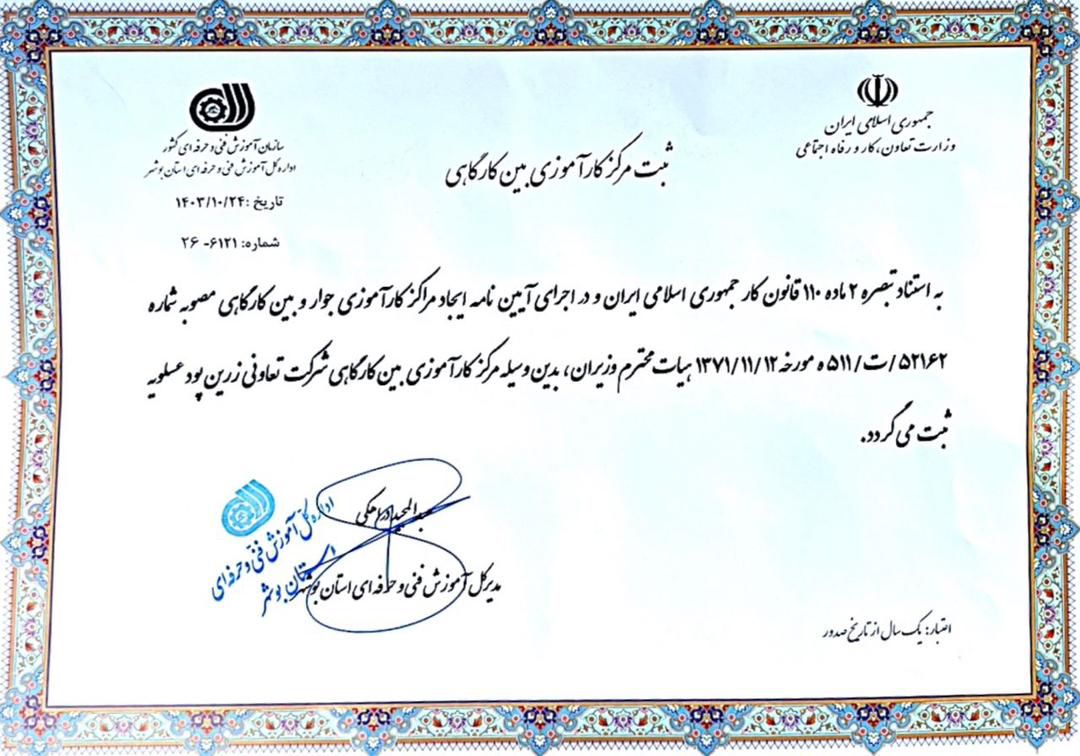 جمهوری اسلامی ایران
وزارت تعاون، کار و رفاه اجتماعی
سازمان آموزش فنی و حرفه ای کشور
اداره کل آموزش فنی و حرفه ای استان بوشهر
تاریخ: ۱۴۰۳/۱۰/۲۴
شماره: ۶۱۲۱- ۲۶
ثبت مرکز کارآموزی بین کارگاهی
به استناد تبصره ۲ ماده ۱۱۰ قانون کار جمهوری اسلامی ایران و در اجرای آیین نامه ایجاد مراکز کارآموزی جوار و بین کارگاهی مصوبه شماره
۵۲۱۶۲/ت/۵۱۱ ه مورخه ۱۳۷۱/۱۱/۱۲ هیات محترم وزیران، بدین وسیله مرکز کارآموزی بین کارگاهی شرکت تعاونی زرین پود عسلویه
ثبت می گردد.
عبدالمجید دراهکی
مدیرکل آموزش فنی و حرفه ای استان بوشهر
اداره کل آموزش فنی و حرفه ای
استان بوشهر
اعتبار: یک سال از تاریخ صدور